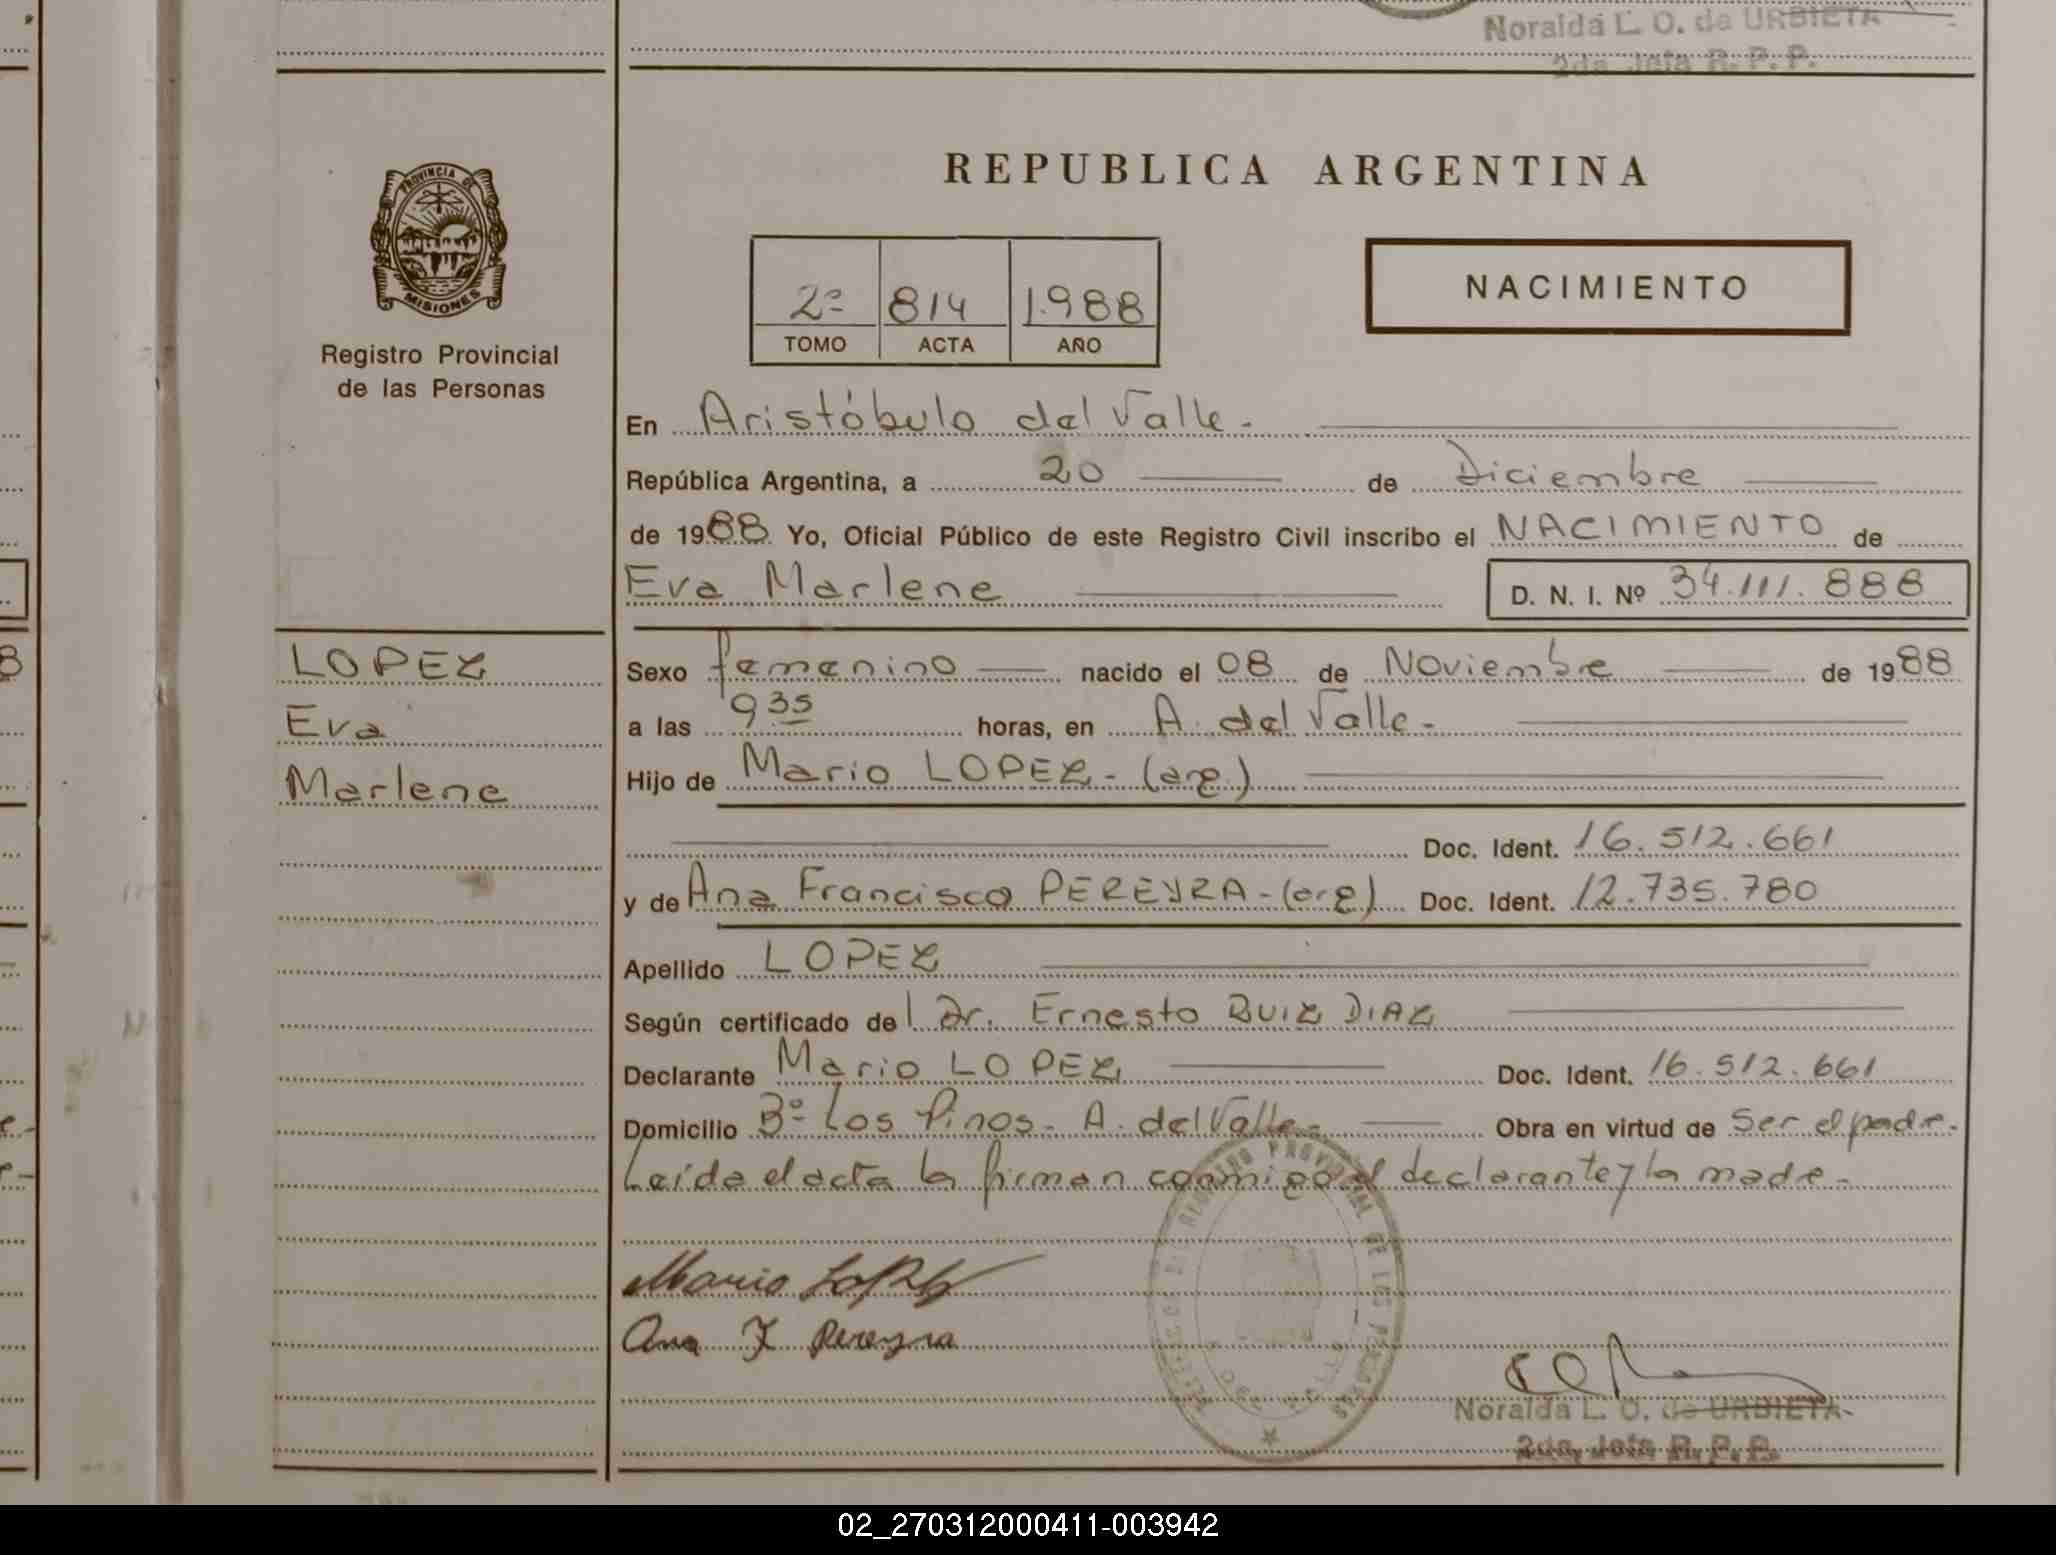 Noralda L. O. de URBIETA
2da. Jefa R. P. P.
PROVINCIA DE
MISIONES
Registro Provincial
de las Personas
REPUBLICA ARGENTINA
2º 814 1.988
TOMO ACTA AÑO
NACIMIENTO
En Aristóbulo del Valle.-
República Argentina, a 20 de Diciembre
de 1988 Yo, Oficial Público de este Registro Civil inscribo el NACIMIENTO de
Eva Marlene D. N. I. Nº 34.111.888
LOPEZ
Eva
Marlene
Sexo femenino nacido el 08 de Noviembre de 1988
a las 9 35 horas, en A. del Valle.-
Hijo de Mario LOPEZ - (arg.)
Doc. Ident. 16.512.661
y de Ana Francisca PEREYRA - (arg) Doc. Ident. 12.735.780
Apellido LOPEZ
Según certificado del Dr. Ernesto RUIZ DIAZ
Declarante Mario LOPEZ Doc. Ident. 16.512.661
Domicilio Bº Los Pinos - A. del Valle.- Obra en virtud de ser el padre.-
Leída el acta la firman conmigo el declarante y la madre.-
Mario Lopez
Ana F Pereyra
REGISTRO PROVINCIAL DE LAS PERSONAS
A. DEL VALLE
Noralda L. O. de URBIETA
2da. Jefa R. P. P.
02_270312000411-003942